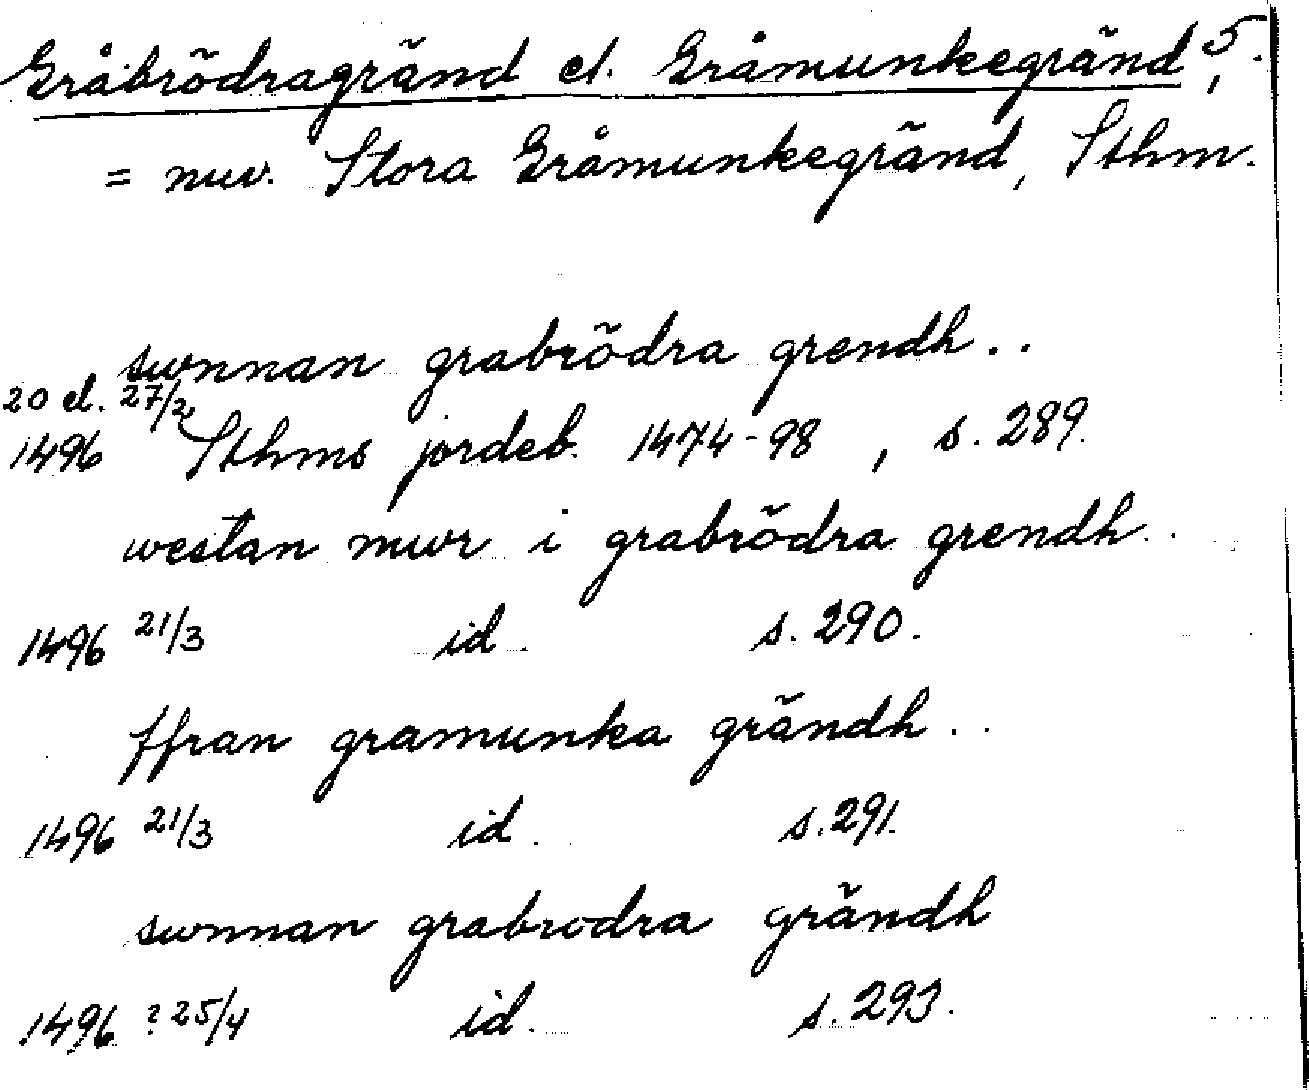 Gråbrödragränd el. Gråmunkegränd, 5.
= nuv. Stora Gråmunkegränd, Sthm.
swnnan grabrödra grendh..
20 el. 27/2
1496 Sthms jordeb. 1474-98, s. 289.
westan mwr i grabrödra grendh..
1496 21/3 id. s. 290.
ffran gramunka grändh..
1496 21/3 id. s. 291.
swnnan grabrodra grändh
1496 ? 25/4 id. s. 293.